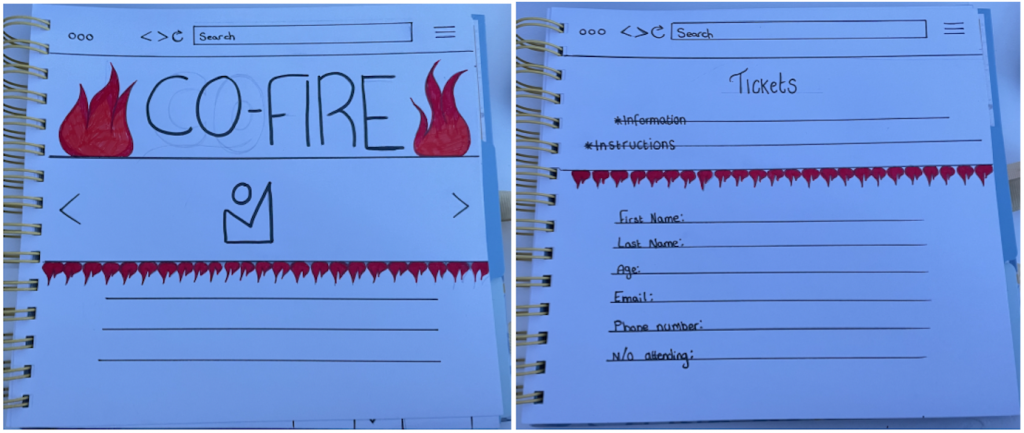 Search
CO-FIRE
Search
Tickets
*Information
*Instructions
First Name:
Last Name:
Age:
Email:
Phone number:
N/O attending: